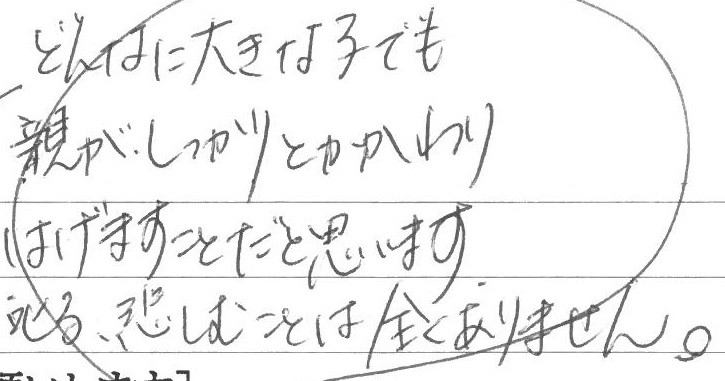 どんなに大きな子でも
親が、しっかりとかかわり
はげますことだと思います
悲しむことは全くありません。